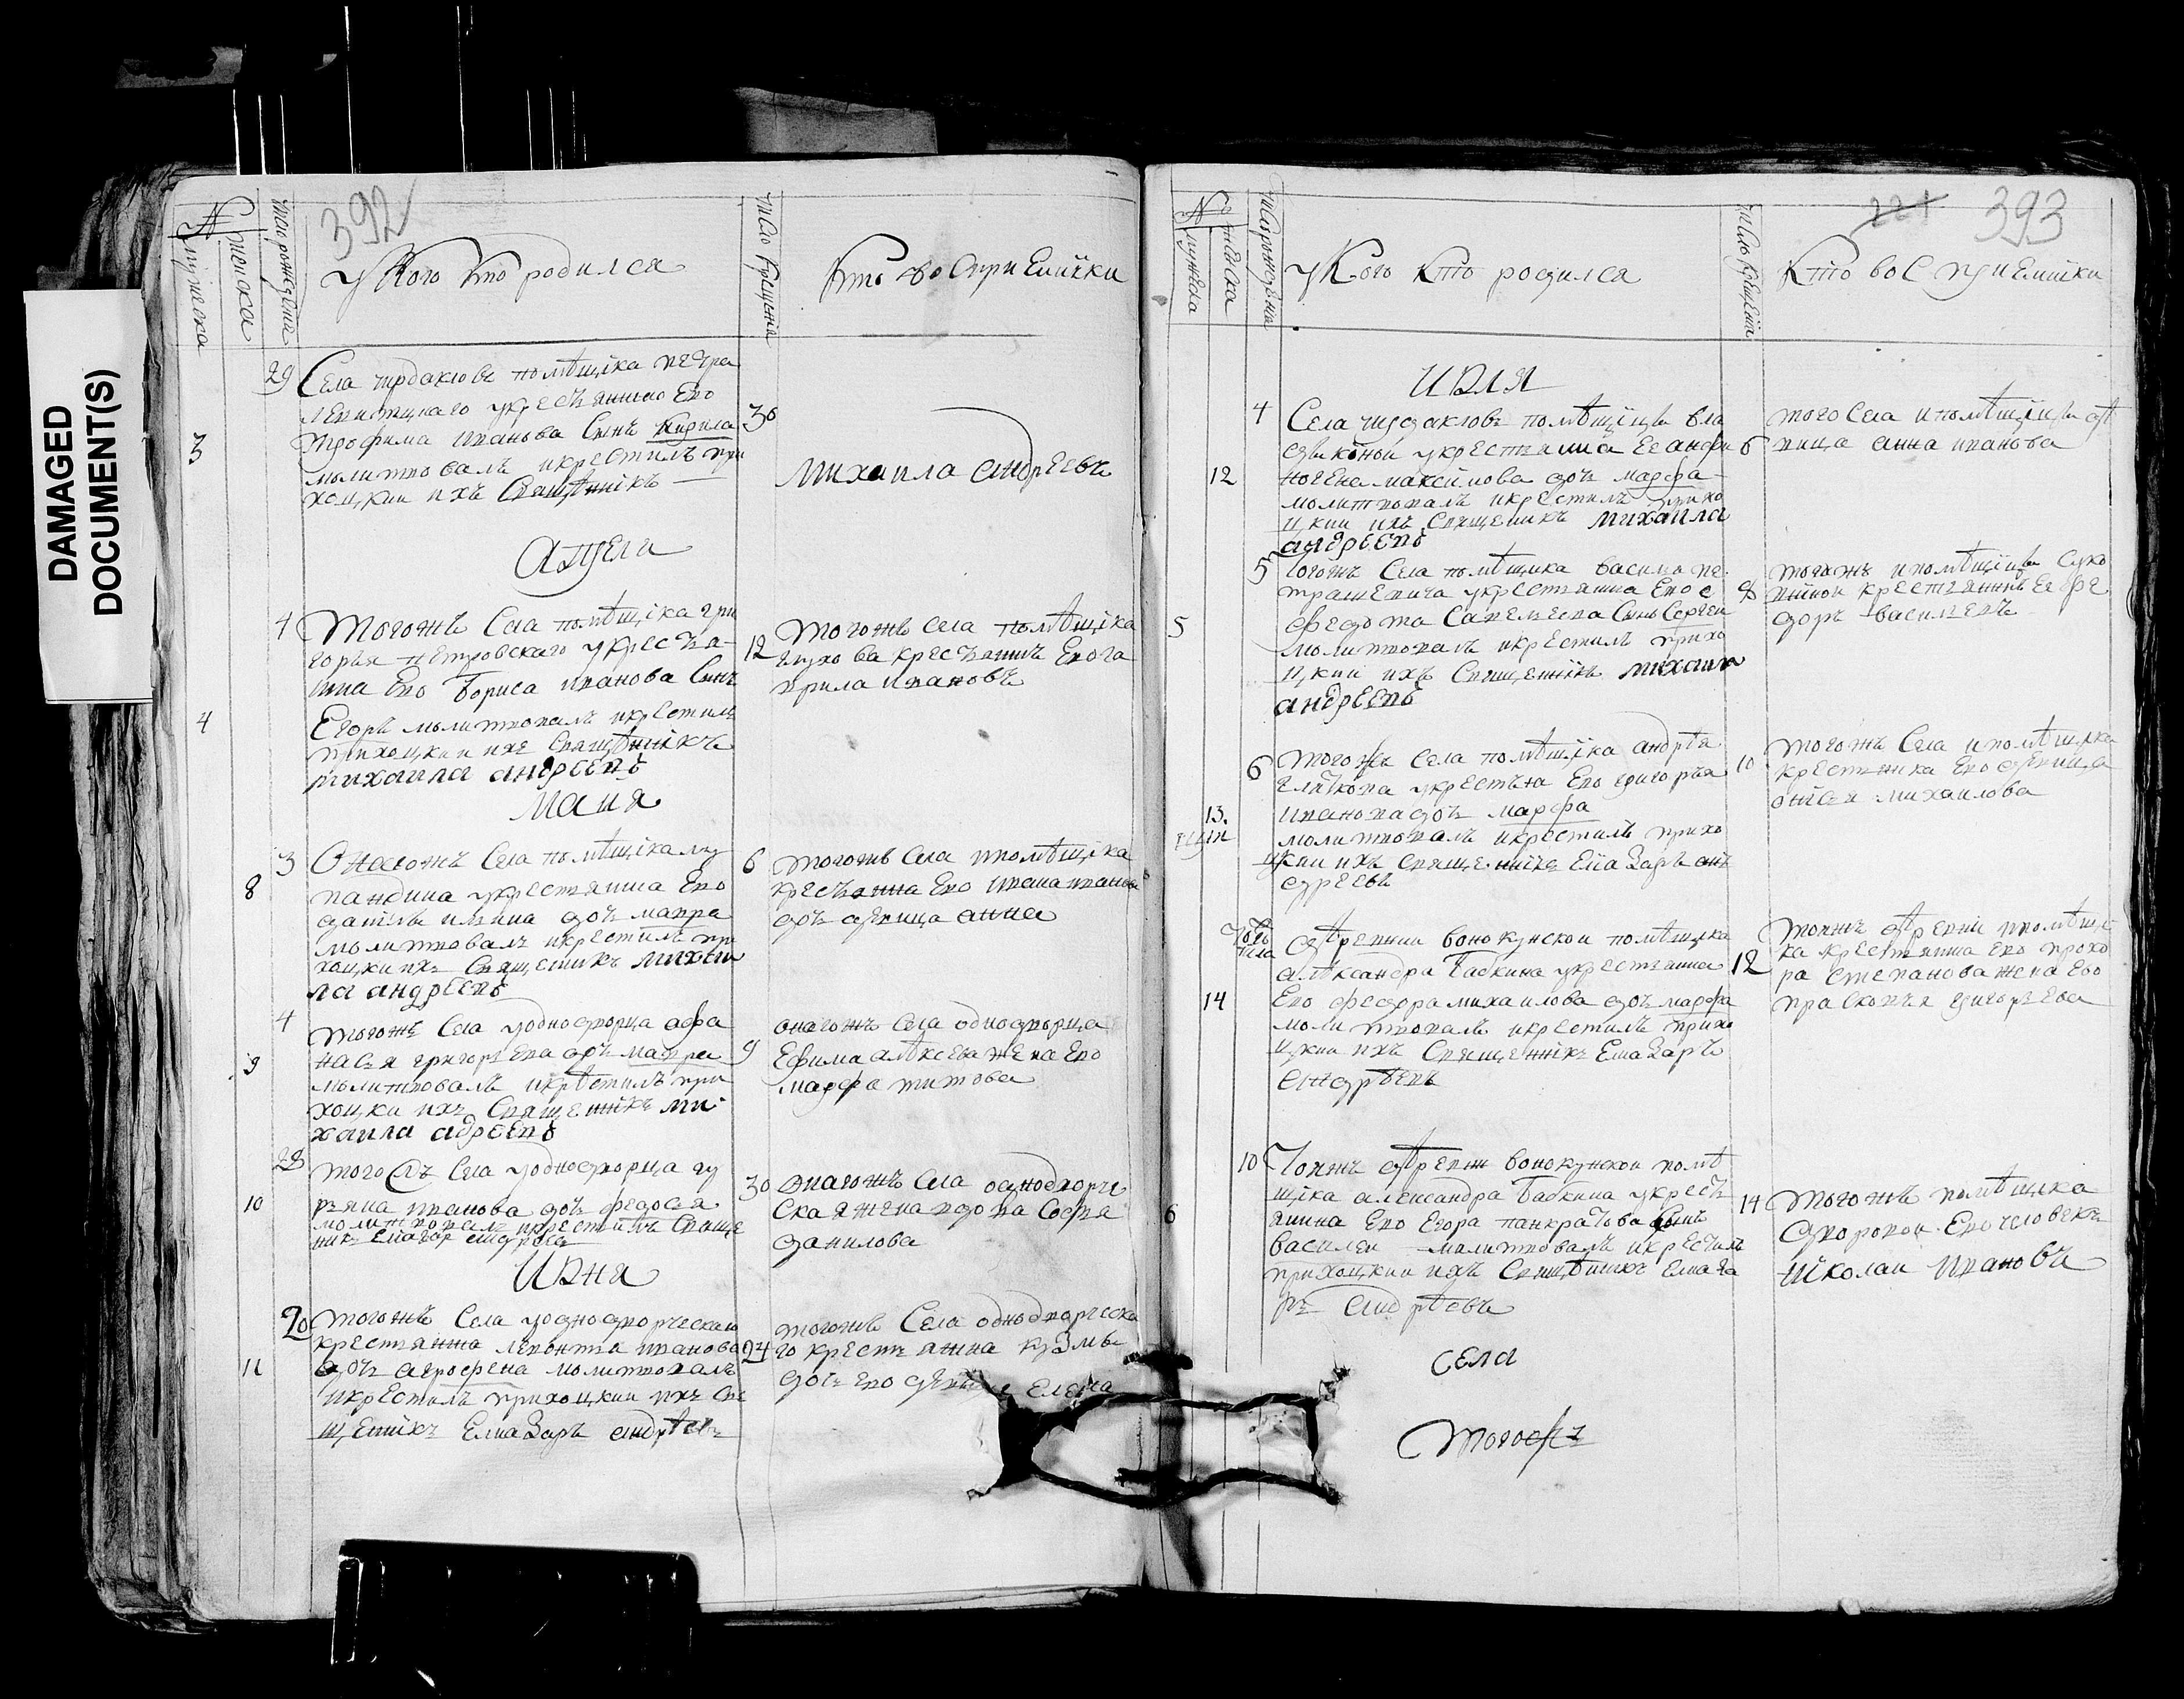 DAMAGED
DOCUMENT(S)
392
№
мужеска
женска
число рождения
у Кого кто родился
число крещения
кто восприемники
29
Села чюдаково помѣщика петра
укрестьянина Его
3
трофима иванова Сынъ кирила
30
молитвовалъ икрестилъ при
хоцкии ихъ Священникъ
михаила андреевъ
апреля
4
Тогожъ Села помѣщика гри
горья петровскаго укрестья
нина Его бориса иванова Сынъ
4
Егоръ молитвовалъ икрестилъ
прихоцкии ихъ Священникъ
михаила андреевъ
12
Тогожъ села помѣщика
глухова крестьянинъ Его га
врила ивановъ
маия
3
Оногожъ Села помѣщика му
8
ханова укрестянина Его
данилы ильина дочь мавра
молитвовалъ икрестилъ при
хоцки ихъ Священикъ михаи
ла андреевъ
6
тогожъ села ипомѣщика
крестьянина Его ивана иванова
дочь девица анна
4
тогожъ Села уоднодворца афа
9
насья григорьева дочь мавра
молитвовалъ икрестилъ при
хоцки ихъ Священикъ ми
хаила адреевъ
9
оногожъ села однодворца
Ефима алексеева жена Его
марфа титова
28
того жъ Села уоднодворца гу
10
рьяна иванова дочь федосья
молитвовалъ икрестилъ Свяще
никъ Елиазар андреевъ
30
оногожъ села однодворче
ская жена вдова Софья
данилова
июня
20
тогожъ Села уоднодворческаго
крестьянина леонтья иванова
11
дочь агрофена молитвовалъ
икрестилъ прихоцкии ихъ Свя
щеникъ Елиазаръ андреевъ
24
тогожъ Села однодворческа
го крестьянина кузмы
дочь его девица Елена
221 393
№
мужеска
женска
число рождения
у Кого кто родился
число крещения
Кто восприемники
июля
4
Села чюдаково помѣщицы вла
дыкиной укрестянина Ее андри
12
ногена максимова дочь марфа
молитвовалъ икрестилъ прихо
цкии ихъ Священикъ михаила
андреевъ
6
того Села ипомѣщицы дѣ
вица анна иванова
5
Тогожъ Села помѣщика василья пе
трашевича укрестянина Его
5
федота Савельева Сынъ Сергеи
молитвовалъ икрестилъ прихо
цкии ихъ Священикъ михаила
андреевъ
8
тогожъ ипомѣщицы Суко
виной крестьянинъ Ее фе
доръ васильевъ
6
тогожъ Села помѣщика андрѣя
Елакова укрестьяна Его григорья
13.
иванова дочь марфа
молитвовалъ икрестилъ прихо
цкии ихъ Священикъ Елиазаръ ан
дреевъ
10
тогожъ Села ипомѣщика
крестьянка Его девица
михаилова
дѣревни вонокунской помѣщика
александра бабкина укрестянина
14
Его федора михаилова дочь марфа
молитвовалъ икрестилъ прихо
цкии ихъ Священикъ Елиазаръ
андрѣевъ
12
тояжъ дѣревни ипомѣщи
ка крестянина Его прохо
ра степанова жена Его
прасковья григорьева
10
Тояжъ дѣревни вонокунской помѣ
щика александра бабкина укресть
6
янина Его Егора панкратова Сынъ
василеи молитвовалъ икрестилъ
прихоцкии ихъ Священикъ Елиаза
ръ андрѣевъ
14
тогожъ помѣщика
дворовои Его человекъ
николаи ивановъ
села
тогожъ